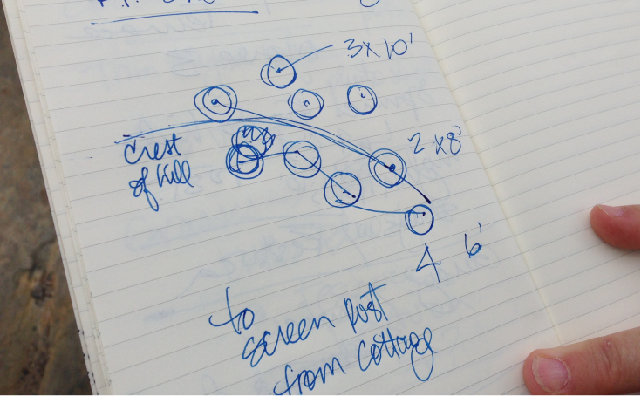 3 x 10'
Crest
of hill
2 x 8'
4 6'
to
screen post
from cottage